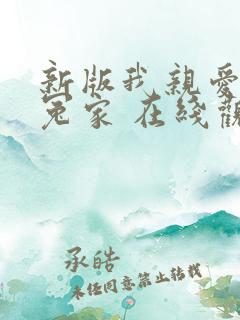 新版我親愛
冤家 在綫觀
承皓
未经同意禁止转载